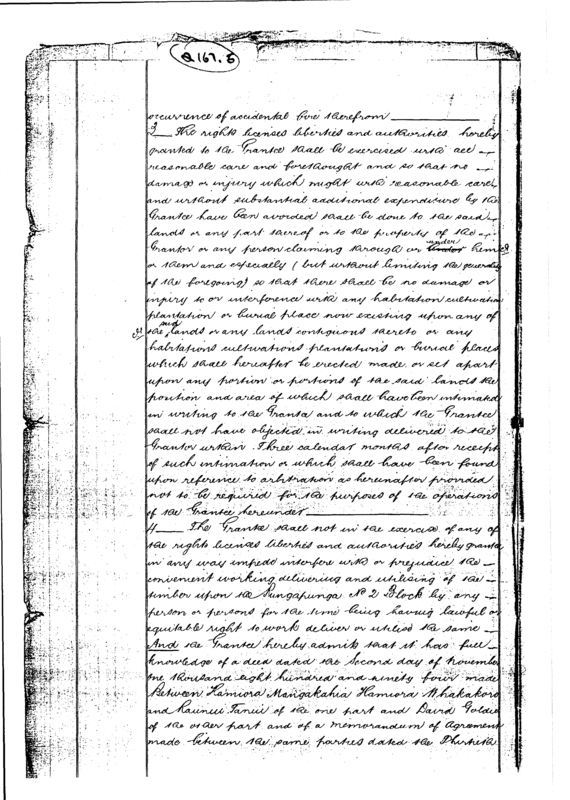 Q 167.5
occurrence of accidental fire therefrom
3 The rights licenses liberties and authorities hereby
granted to the Grantee shall be exercised with all
reasonable care and forethought and so that no
damage or injury which might with reasonable care
and without substantial additional expenditure by the
Grantee have been avoided shall be done to the said
lands or any part thereof or to the property of the
Grantor or any person claiming through or under him
or them and especially (but without limiting the generality
of the foregoing) so that there shall be no damage or
injury to or interference with any habitation cultivation
plantation or burial place now existing upon any of
the said lands or any lands contiguous thereto or any
habitations cultivations plantations or burial places
which shall hereafter be erected made or set apart
upon any portion or portions of the said lands the
position and area of which shall have been intimated
in writing to the Grantee and to which the Grantee
shall not have objected in writing delivered to the
Grantor within Three calendar months after receipt
of such intimation or which shall have been found
upon reference to arbitration as hereinafter provided
not to be required for the purposes of the operations
of the Grantee hereunder
4 The Grantee shall not in the exercise of any of
the rights licenses liberties and authorities hereby granted
in any way impede interfere with or prejudice the
convenient working delivering and utilising of the
timber upon the Pungapunga No 2 Block by any
person or persons for the time being having lawful or
equitable right to work deliver or utilise the same
And the Grantee hereby admits that it has full
knowledge of a deed dated the Second day of November
One thousand eight hundred and ninety four made
Between Hamiora Mangakahia Hamiora Whakakoro
and Raunui Tanui of the one part and David Goldie
of the other part and of a memorandum of Agreement
made between the same parties dated the Thirtieth